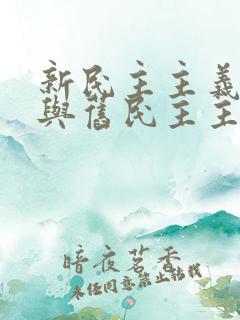 新民主主義
與舊民主主
暗夜茗香
未經同意禁止轉載